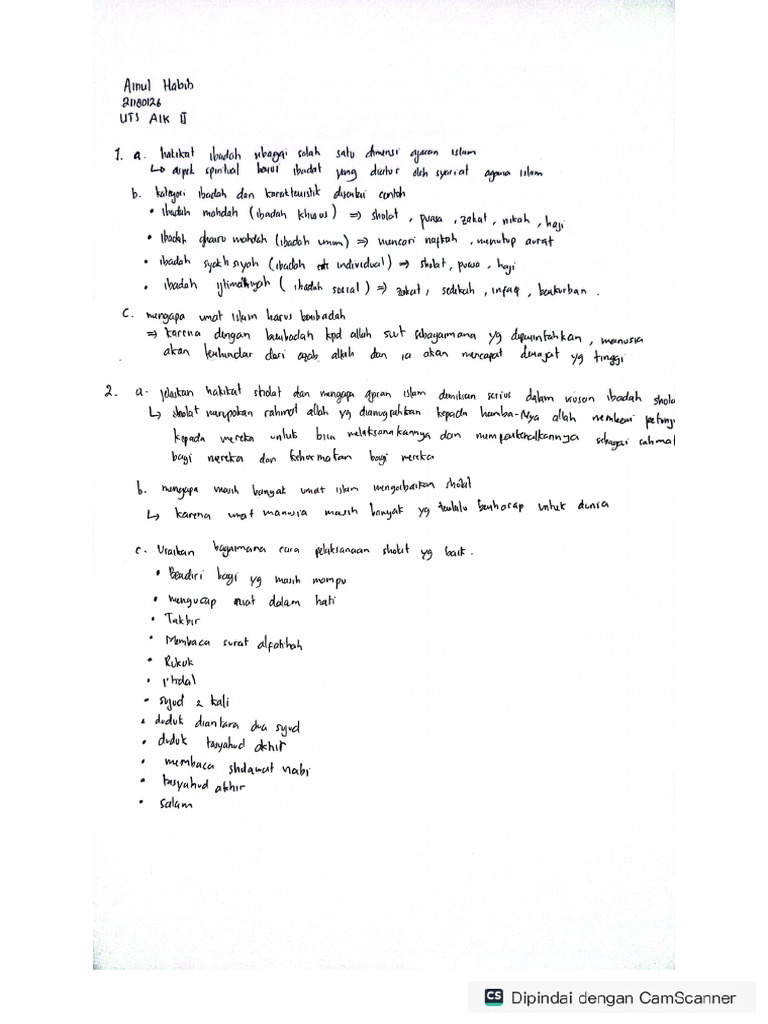 Ainul Habib
21180126
UTS AIK II
1. a. hakikat ibadah sebagai salah satu dimensi ajaran islam
↳ aspek spiritual berupa ibadat yang diatur oleh syariat agama islam
b. kategori ibadah dan karakteristik disertai contoh
• ibadah mahdah (ibadah khusus) => sholat, puasa, zakat, nikah, haji
• ibadah ghairu mahdah (ibadah umum) => mencari nafkah, menutup aurat
• ibadah syakhsiyah (ibadah individual) => sholat, puasa, haji
• ibadah ijtimaiyah (ibadah social) => zakat, sedekah, infaq, berkurban.
C. mengapa umat islam harus beribadah
=> karena dengan beribadah kpd allah swt sebagaimana yg diperintahkan, manusia
akan terhindar dari azab allah dan ia akan mencapat derajat yg tinggi
2. a. jelaskan hakikat sholat dan mengapa ajaran islam demikian serius dalam urusan ibadah shola
↳ sholat merupakan rahmat allah yg dianugrahkan kepada hamba-Nya allah memberi petunj
kepada mereka untuk bisa melaksanakannya dan memperkenalkannya sebagai rahmat
bagi mereka dan kehormatan bagi mereka
b. mengapa masih banyak umat islam mengabaikan sholat
↳ karena umat manusia masih banyak yg terlalu berharap untuk dunia
c. Uraikan bagaimana cara pelaksanaan sholat yg baik.
• Berdiri bagi yg masih mampu
• mengucap niat dalam hati
• Takbir
• Membaca surat alfatihah
• Rukuk
• i'tidal
• sujud 2 kali
• duduk diantara dua sujud
• duduk tasyahud akhir
• membaca sholawat nabi
• tasyahud akhir
• salam
CS Dipindai dengan CamScanner